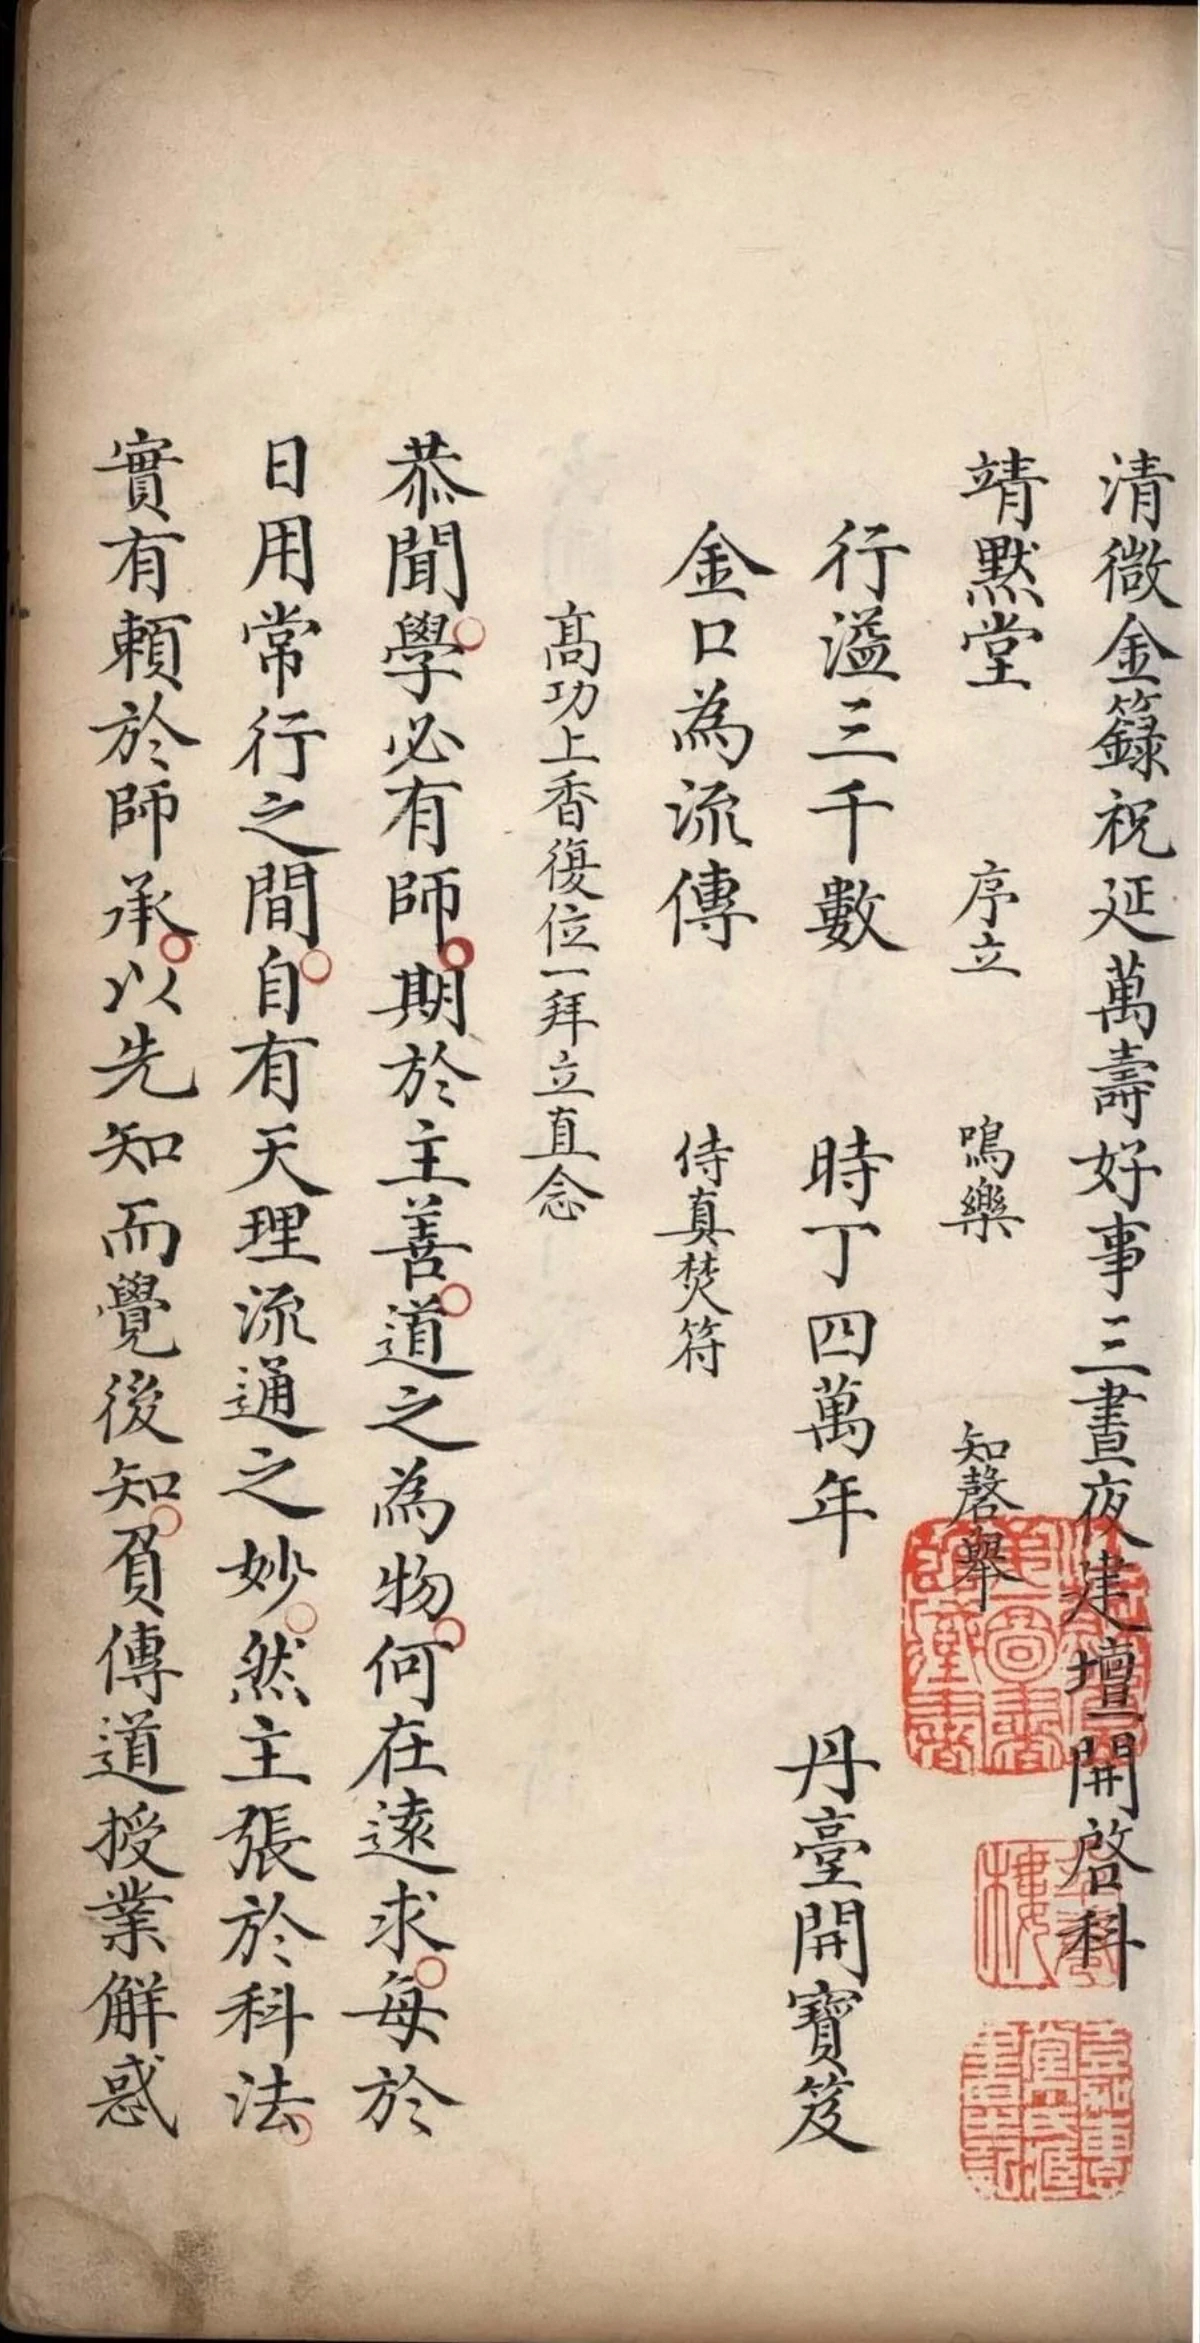 清微金籙祝延萬壽好事三晝夜建壇開啓科
靖黙堂 序立 鳴樂 知磬舉
行溢三千數 時丁四萬年 丹臺開寶笈
金口為流傳 侍真焚符
髙功上香復位一拜立直念
恭聞學必有師期於主善道之為物何在遠求每於
日用常行之間自有天理流通之妙然主張於科法
實有頼於師承以先知而覺後知負傳道授業解惑